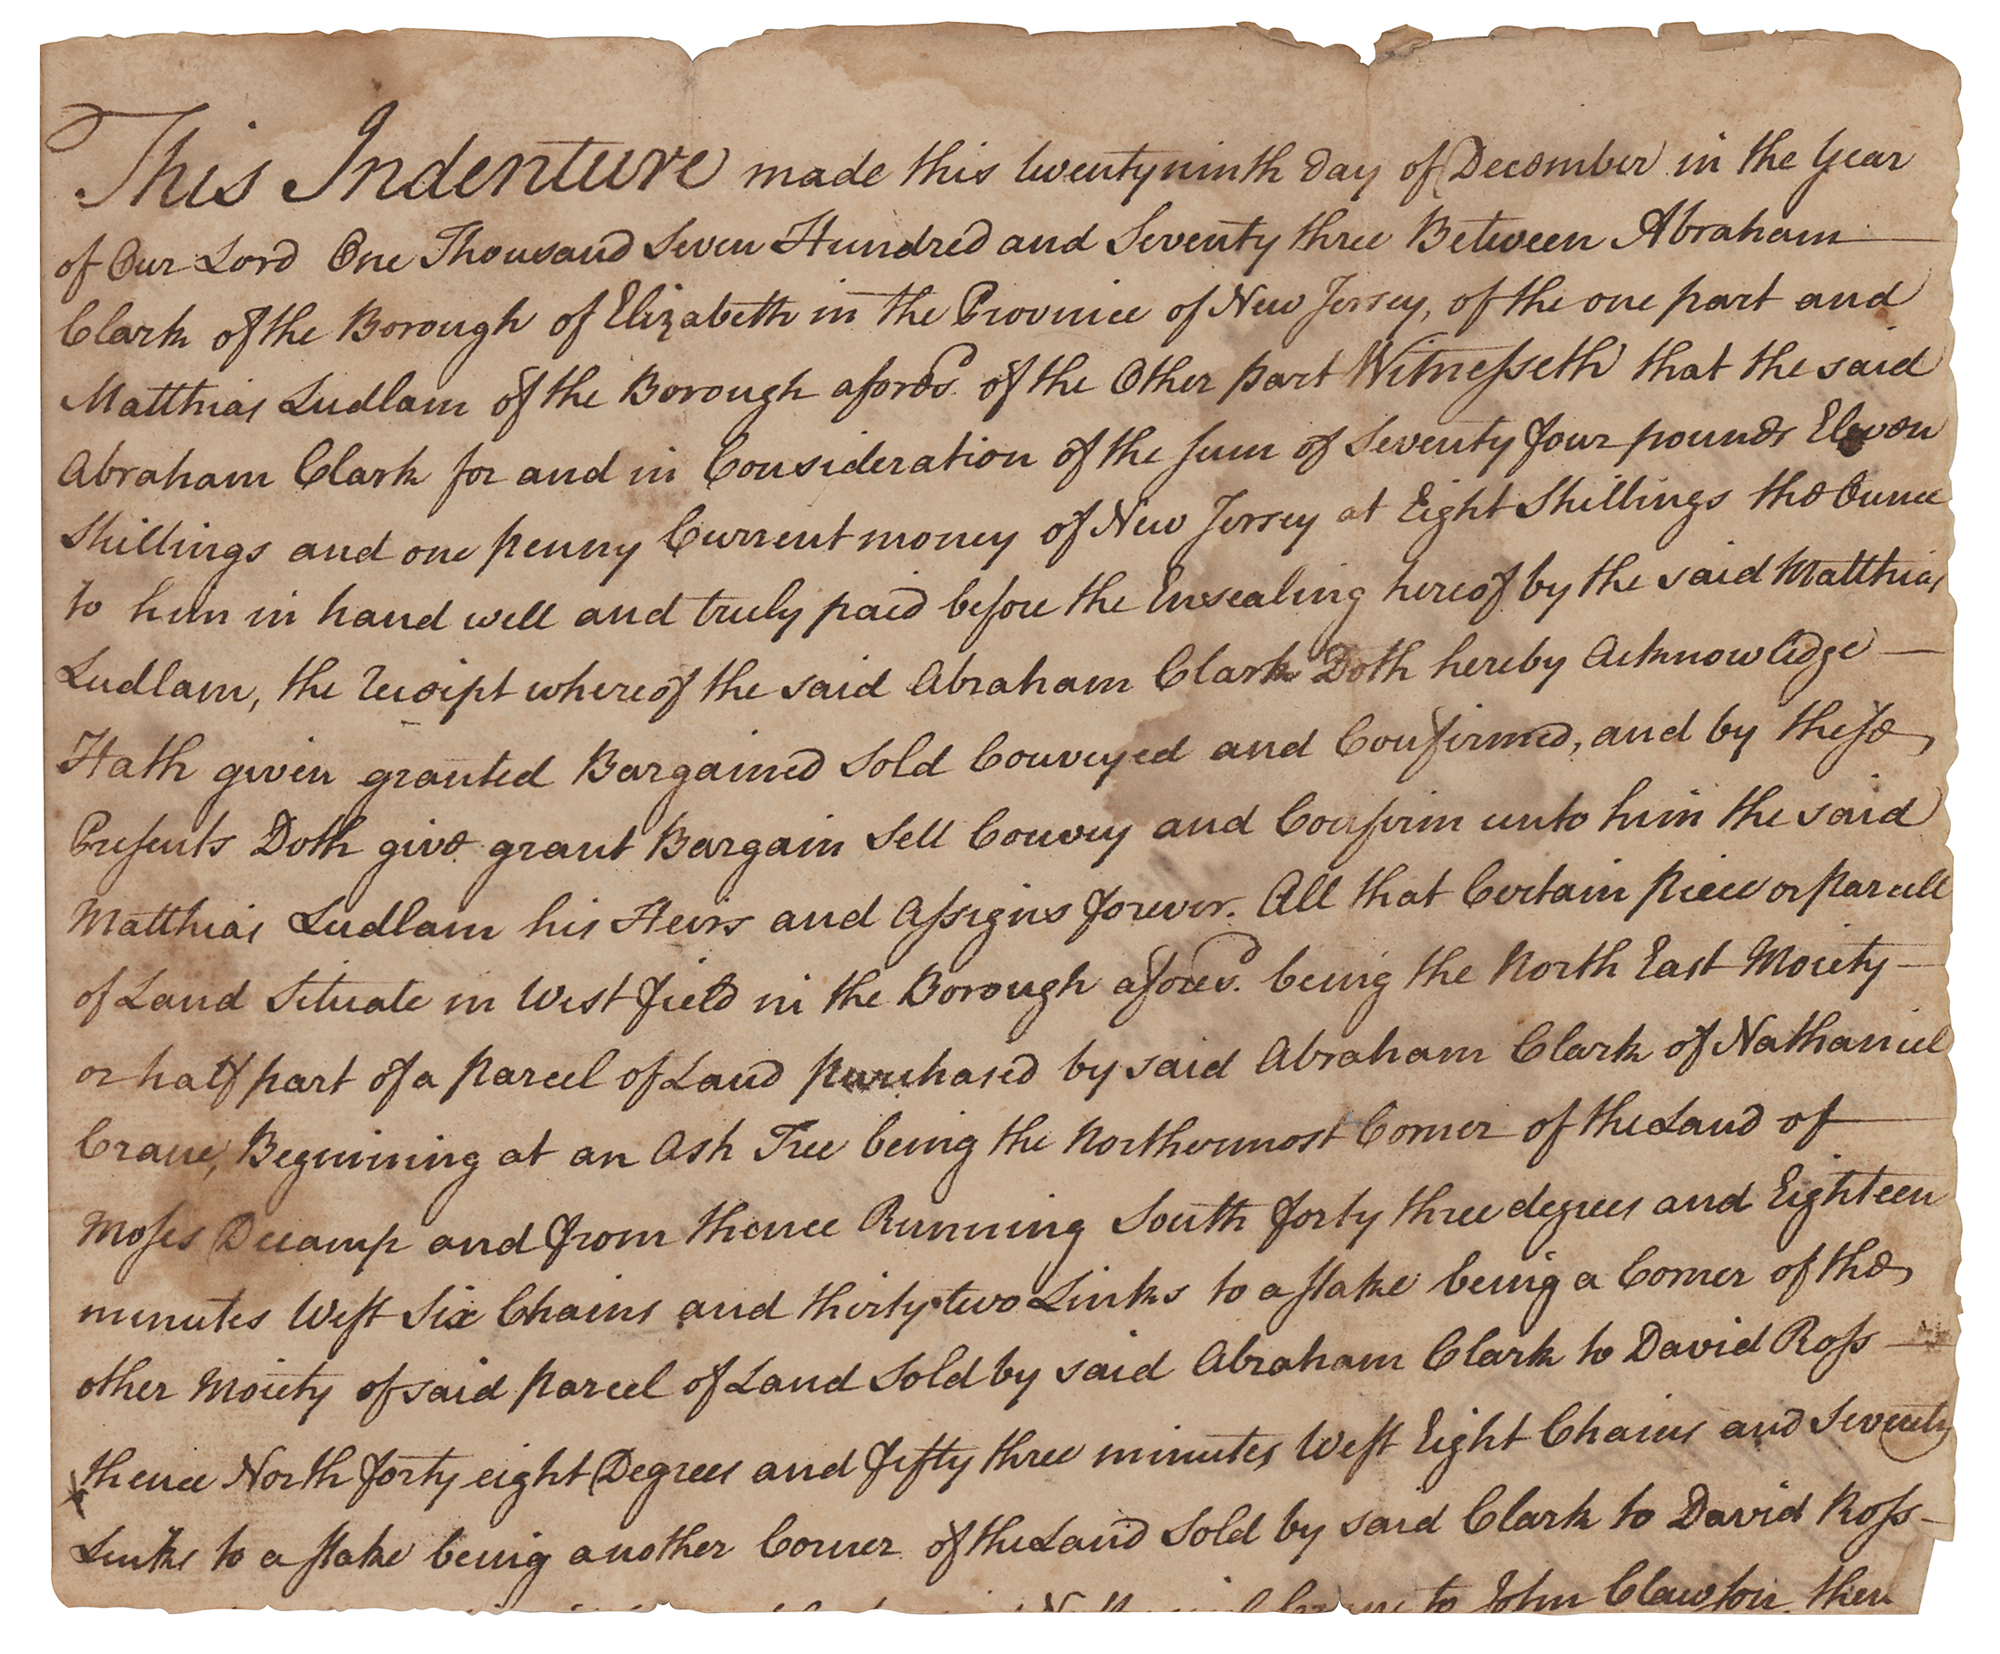 This Indenture made this twentyninth Day of December in the Year
of Our Lord One Thousand Seven Hundred and Seventy three Between Abraham
Clark of the Borough of Elizabeth in the Province of New Jersey, of the one part and
Matthias Ludlam of the Borough afores.d of the Other part Witnesseth that the said
Abraham Clark for and in Consideration of the sum of Seventy four pounds Eleven
Shillings and one penny Current money of New Jersey at Eight Shillings the Ounce
to him in hand well and truly paid before the Ensealing hereof by the said Matthias
Ludlam, the receipt whereof the said Abraham Clark Doth hereby Acknowledge
Hath given granted Bargained Sold Conveyed and Confirmed, and by these
Presents Doth give grant Bargain Sell Convey and Confirm unto him the said
Matthias Ludlam his Heirs and Assigns forever. All that Certain piece or parcell
of Land Situate in West field in the Borough afores.d being the North East Moiety
or half part of a parcel of Land purchased by said Abraham Clark of Nathaniel
Crane, Beginning at an Ash Tree being the Northernmost Corner of the Land of
Moses Decamp and from thence Running South forty three degrees and Eighteen
minutes West Six Chains and thirty two Links to a stake being a Corner of the
other Moiety of said parcel of Land Sold by said Abraham Clark to David Ross
thence North forty eight Degrees and fifty three minutes West Eight Chains and Seventy
Links to a stake being another Corner of the Land Sold by said Clark to David Ross
to John Clawton